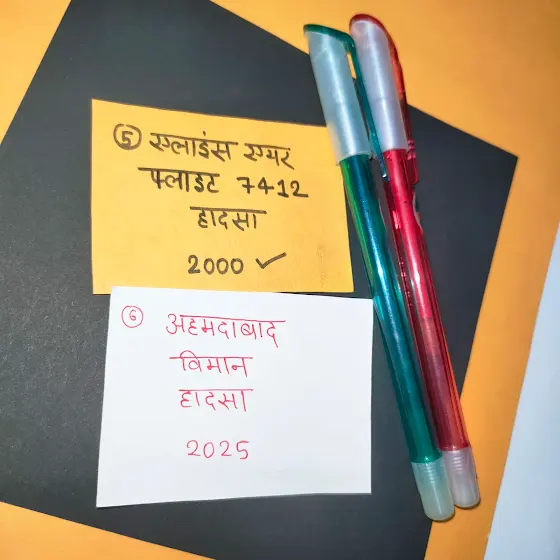 ⑤ एलाइंस एयर
फ्लाइट 7412
हादसा
2000 ✓
⑥ अहमदाबाद
विमान
हादसा
2025